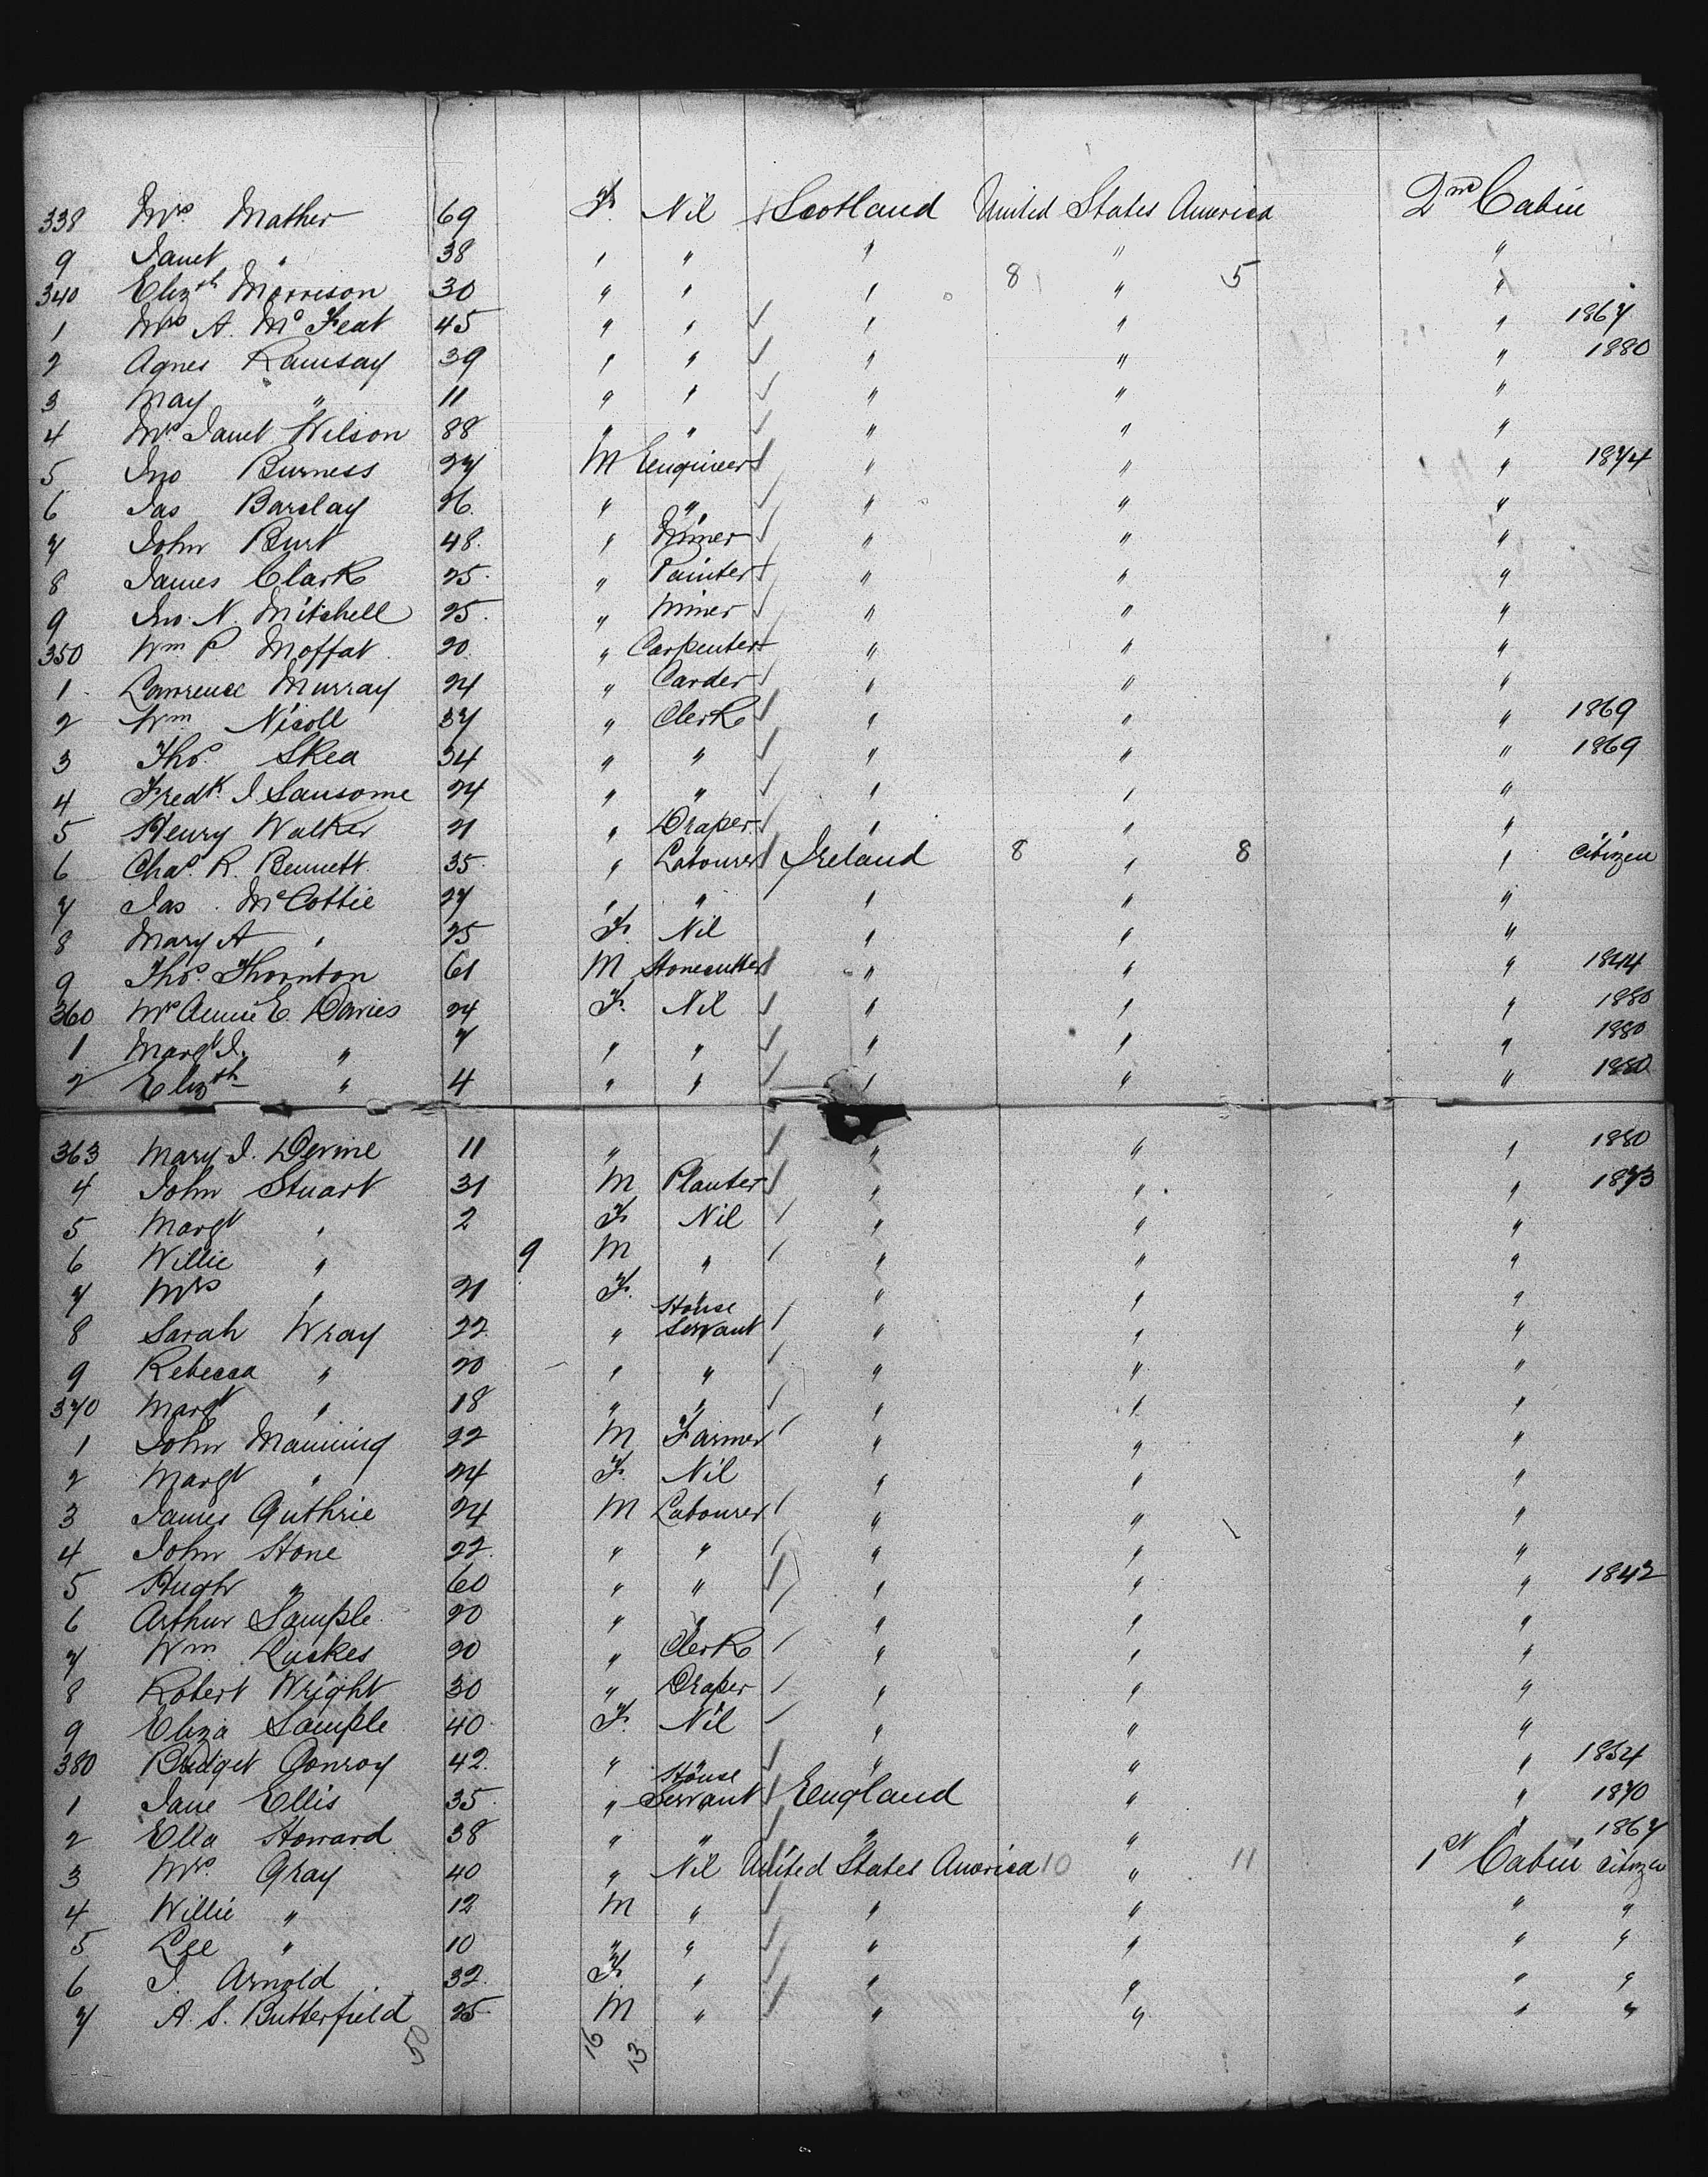 338 Mrs. Mather 69 F. Nil Scotland United States America 2nd Cabin
9 Janet " 38 " " " " "
8 5
340 Elizth Morrison 30 " " " " "
1 Mrs A. McFeat 45 " " " " " 1867
2 Agnes Ramsay 39 " " " " " 1880
3 May " 11 " " " " "
4 Mrs Janet Wilson 88 " " " " "
5 Jno Burness 27 M Engineer " " " 1874
6 Jas Barclay 26. " " " " "
7 John Burt 48. " Miner " " "
8 James Clark 25. " Painter " " "
9 Jno. N. Mitchell 25. " Miner " " "
350 Wm P. Moffat 20 " Carpenter " " "
1 Lawrence Murray 24 " Carder " " "
2 Wm Nicoll 37 " Clerk " " " 1869
3 Thos. Skea 34 " " " " " 1869
4 Fredk. J. Sansome 24 " " " " "
5 Henry Walker 21 " Draper " " "
6 Chas. R. Bennett 35 " Labourer Ireland 8 " 8 " Citizen
7 Jas. McCottie 27 " " " " "
8 Mary A " 25 F. Nil " " "
9 Thos. Thornton 61 M Stonecutter " " " 1844
360 Mrs Annie E. Davies 24 F. Nil " " " 1880
1 Margt J. " 7 " " " " " 1880
2 Elizth " 4 " " " " " 1880
363 Mary J. Devine 11 " " " " 1880
4 John Stuart 31 M Planter " " " 1873
5 Margt " 2 F. Nil " " "
6 Willie " 9 M " " " "
7 Mrs " 21 F. " " " "
8 Sarah Wray 22 " House Servant " " "
9 Rebecca " 20 " " " " "
370 Margt " 18 " " " " "
1 John Manning 22 M Farmer " " "
2 Margt " 24 F. Nil " " "
3 James Guthrie 24 M Labourer " " "
4 John Stone 22. " " " " "
5 Hugh " 60 " " " " " 1842
6 Arthur Sample 20 " " " " "
7 Wm Luckes 20 " Clerk " " "
8 Robert Wright 30 " Draper " " "
9 Eliza Sample 40 F. Nil " " "
380 Bridget Conroy 42. " " " " " 1854
1 Jane Ellis 35. " House Servant England " " 1870
2 Ella Howard 38 " " " " " 1867
3 Mrs. Gray 40 " Nil United States America 10 " 11 1st Cabin Citizen
4 Willie " 12 M " " " " "
5 Lee " 10 " " " " " "
6 J. Arnold 32. F. " " " " "
7 A. S. Butterfield 25 M " " " " "
50 16 13